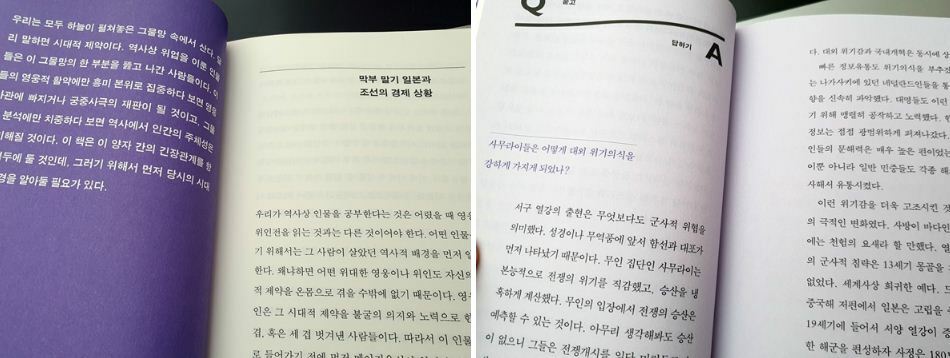 우리는 모두 하늘이 펼쳐놓은 그물망 속에서 산다.
리 말하면 시대적 제약이다. 역사상 위업을 이룬 인물
들은 이 그물망의 한 부분을 뚫고 나간 사람들이다. 이
들의 영웅적 활약에만 흥미 본위로 집중하다 보면 영웅
사관에 빠지거나 궁중사극의 재판이 될 것이고, 그물
분석에만 치중하다 보면 역사에서 인간의 주체성은
해질 것이다. 이 책은 이 양자 간의 긴장관계를 항
두에 둘 것인데, 그러기 위해서 먼저 당시의 시대
경을 알아둘 필요가 있다.
막부 말기 일본과
조선의 경제 상황
우리가 역사상 인물을 공부한다는 것은 어렸을 때 영웅
위인전을 읽는 것과는 다른 것이어야 한다. 어떤 인물
기 위해서는 그 사람이 살았던 역사적 배경을 먼저 알
한다. 왜냐하면 어떤 위대한 영웅이나 위인도 자신의
적 제약을 온몸으로 겪을 수밖에 없기 때문이다. 영웅
인은 그 시대적 제약을 불굴의 의지와 노력으로 한
겹, 혹은 세 겹 벗겨낸 사람들이다. 따라서 이 인물
로 들어가기 전에 먼저
Q 묻고
답하기 A
사무라이들은 어떻게 대외 위기의식을
강하게 가지게 되었나?
서구 열강의 출현은 무엇보다도 군사적 위협을
의미했다. 성경이나 무역품에 앞서 함선과 대포가
먼저 나타났기 때문이다. 무인 집단인 사무라이는
본능적으로 전쟁의 위기를 직감했고, 승산을 냉
혹하게 계산했다. 무인의 입장에서 전쟁의 승산은
예측할 수 있는 것이다. 아무리 생각해봐도 승산
이 없으니 그들은 전쟁개시를
다. 대외 위기감과 국내개혁은 동시에
빠른 정보유통도 위기의식을 부추
는 나가사키에 있던 네덜란드인들을 통
향을 신속히 파악했다. 대명들도 이런
기 위해 맹렬히 공작하고 노력했다.
정보는 점점 광범위하게 퍼져나갔다.
인들의 문해력은 매우 높은 편이었는
이뿐 아니라 일반 민중들도 각종 해
사해서 유통시켰다.
이런 위기감을 더욱 고조시킨 것
의 극적인 변화였다. 사방이 바다인
에는 천험의 요새라 할 만했다.
의 군사적 침략은 13세기 몽골을
없었다. 세계사상 희귀한 예다.
중국해 저편에서 일본은 고립을
19세기에 들어서 서양 열강이
한 해군을 편성하자 사정은